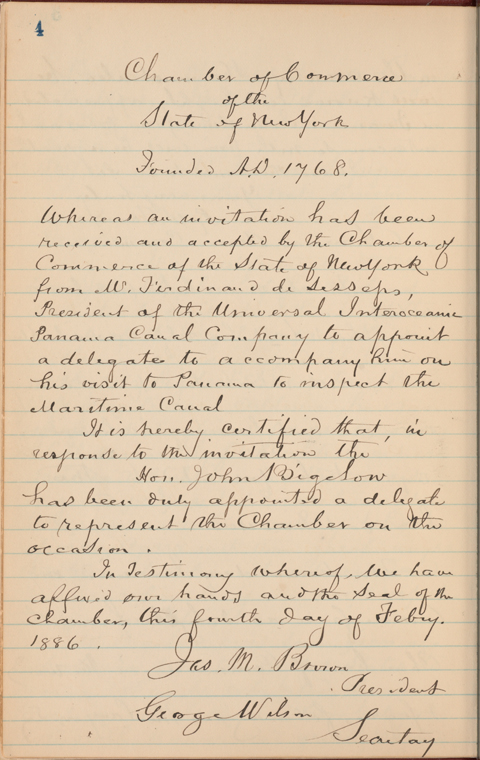 4
Chamber of Commerce
of the
State of New York
Founded A.D. 1768.
Whereas an invitation has been
received and accepted by the Chamber of
Commerce of the State of New York
from Mr. Ferdinand de Lesseps,
President of the Universal Interoceanic
Panama Canal Company to appoint
a delegate to accompany him on
his visit to Panama to inspect the
Maritime Canal
It is hereby certified that, in
response to the invitation the
Hon. John Bigelow
has been duly appointed a delegate
to represent the Chamber on the
occasion.
In Testimony whereof, we have
affixed our hands and the Seal of the
Chamber, this fourth day of Febry.
1886.
Jas. M. Brown
President
George Wilson
Secretary